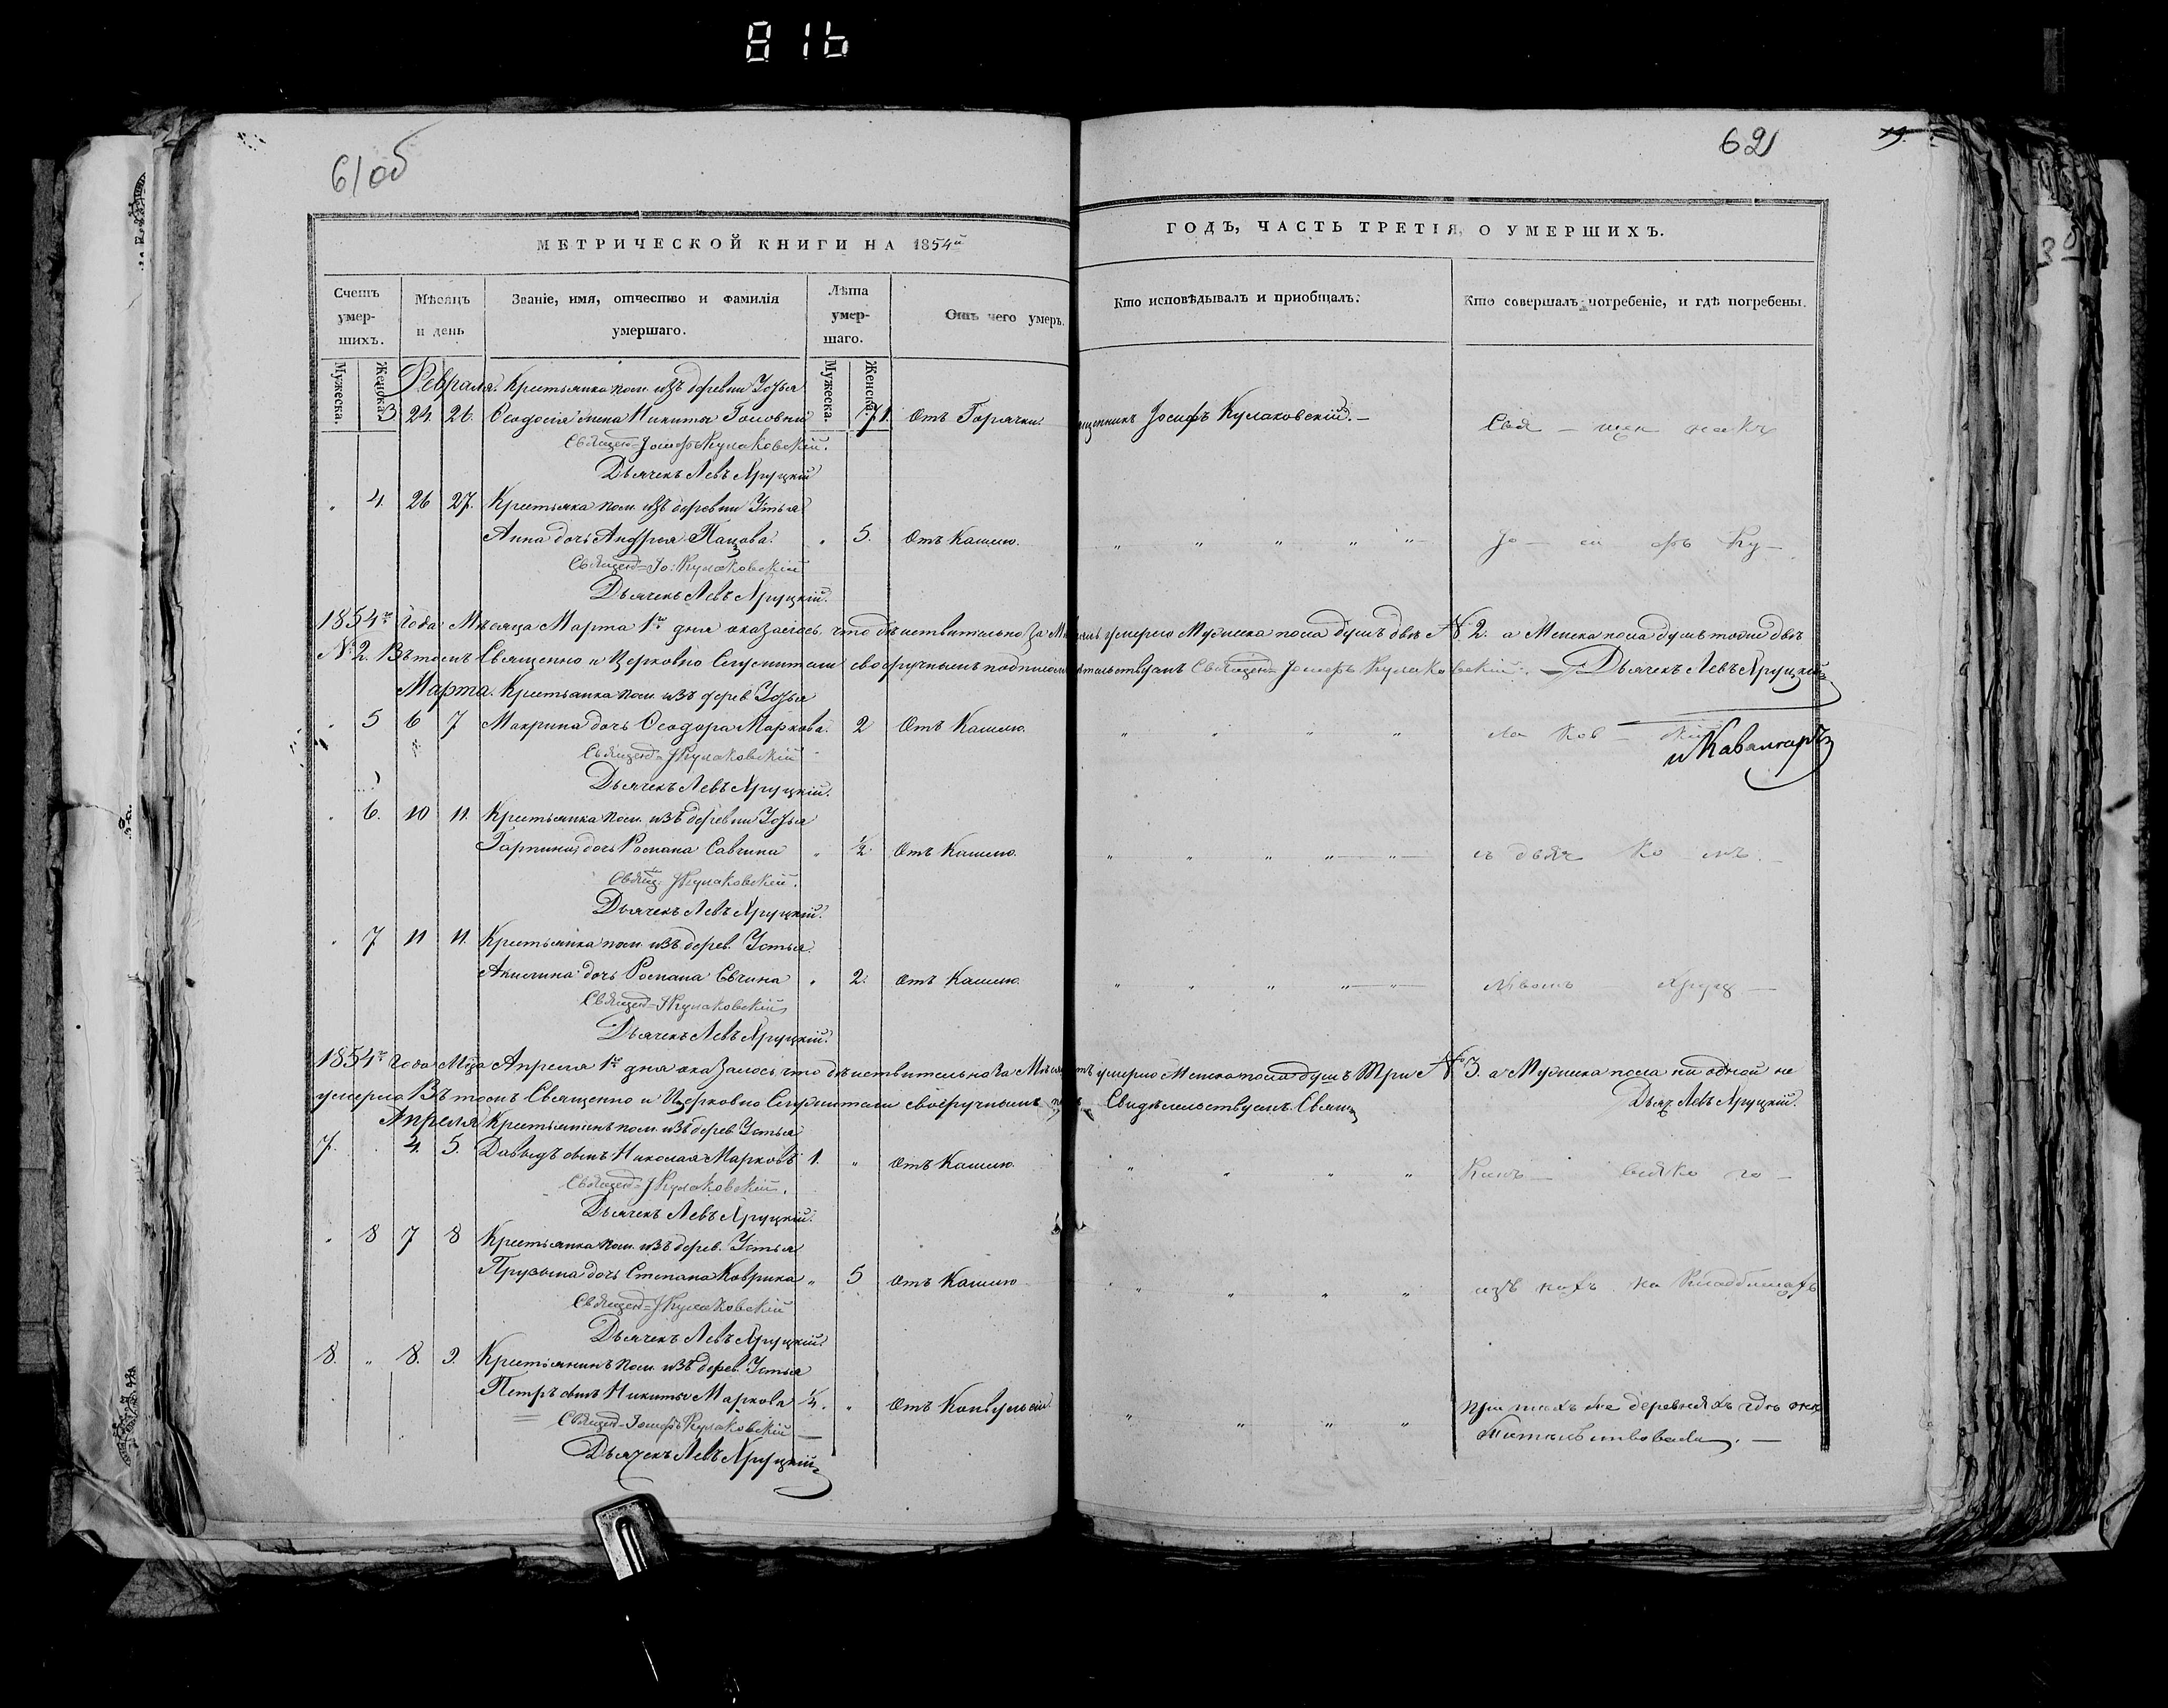 816
61об
62
МЕТРИЧЕСКОЙ КНИГИ НА 1854й
ГОДЪ, ЧАСТЬ ТРЕТІЯ, О УМЕРШИХЪ.
Счетъ умер-шихъ.
Мѣсяцъ и день
Званіе, имя, отчество и фамилія умершаго.
Лѣта умер-шаго.
Отъ чего умеръ.
Кто исповѣдывалъ и пріобщалъ.
Кто совершалъ погребеніе, и гдѣ погребены.
Мужеска. Женска.
Мужеска. Женска.
Февраля. Крестьянка пом. изъ деревни Устья
3 24. 26. Ѳеодосія жена Никиты Головни 71. Отъ Горячки. Іосифъ Кулаковскій. — Свя — щен никъ
Священ= Іосифъ Кулаковскій.
Дьячекъ Левъ Хруцкій
" 4. 26 27. Крестьянка пом. изъ деревни Устья
Анна дочь Андрея " 5. Отъ Кашлю. " " " " " Іо — си фъ Ку —
Священ= Іо: Кулаковскій
Дьячекъ Левъ Хруцкій.
1854го Года Мѣсяца Марта 1го дня оказалось что дѣйствительно За умерло Мужеска пола душъ двѣ № 2. а Женска пола душъ тоже двѣ
№ 2. Въ томъ Священно и Церковно Служители своеручнымъ Священ= Іосифъ Кулаковскій. — Дьячекъ Левъ Хруцкій
Марта. Крестьянка пом. изъ дерев. Устья
" 5 6 7 Макрина дочь Ѳеодора Маркова. 2 Отъ Кашлю. " " " " ла ков — скій
Священ= І Кулаковскій
Дьячекъ Левъ Хруцкій.
" 6. 10 11. Крестьянка пом. изъ деревни Устья
дочь Романа Савчина " ½ Отъ Кашлю. " " " " " съ дьяч ко мъ
Свящ: І Кулаковскій.
Дьячекъ Левъ Хруцкій.
" 7 11 11. Крестьянка пом. изъ дерев. Устья
Акилина дочь Романа " 2. Отъ Кашлю. " " " " " Львомъ Хруц —
Священ= І Кулаковскій
Дьячекъ Левъ Хруцкій.
1854го Года Мца Апреля 1го дня оказалось что дѣйствительно За умерло Женска пола душъ три № 3. а Мужеска пола ни одной не
умерло Въ томъ Священно и Церковно Служители своеручнымъ Свидѣтельствуемъ. Свящ Дьяч. Левъ Хруцкій.
Апреля Крестьянинъ пом. изъ дерев. Устья
7. 4. 5. Давыдъ сынъ Николая Марковъ 1. " Отъ Кашлю. " " " "
Священ= І Кулаковскій.
Дьячекъ Левъ Хруцкій.
" 8 7 8 Крестьянка пом. изъ дерев. Устья
дочь Степана Коврика " 5 Отъ Кашлю " " " " изъ нихъ на Кладбищахъ
Священ= І Кулаковскій
Дьячекъ Левъ Хруцкій.
8. " 8. 9. Крестьянинъ пом. изъ дерев. Устья
Петръ сынъ Никиты Маркова ¼. " Отъ Конвульсіи. " " " " при тѣхъ же деревняхъ гдѣ они
Священ= Іосифъ Кулаковскій —
Дьячекъ Левъ Хруцкій